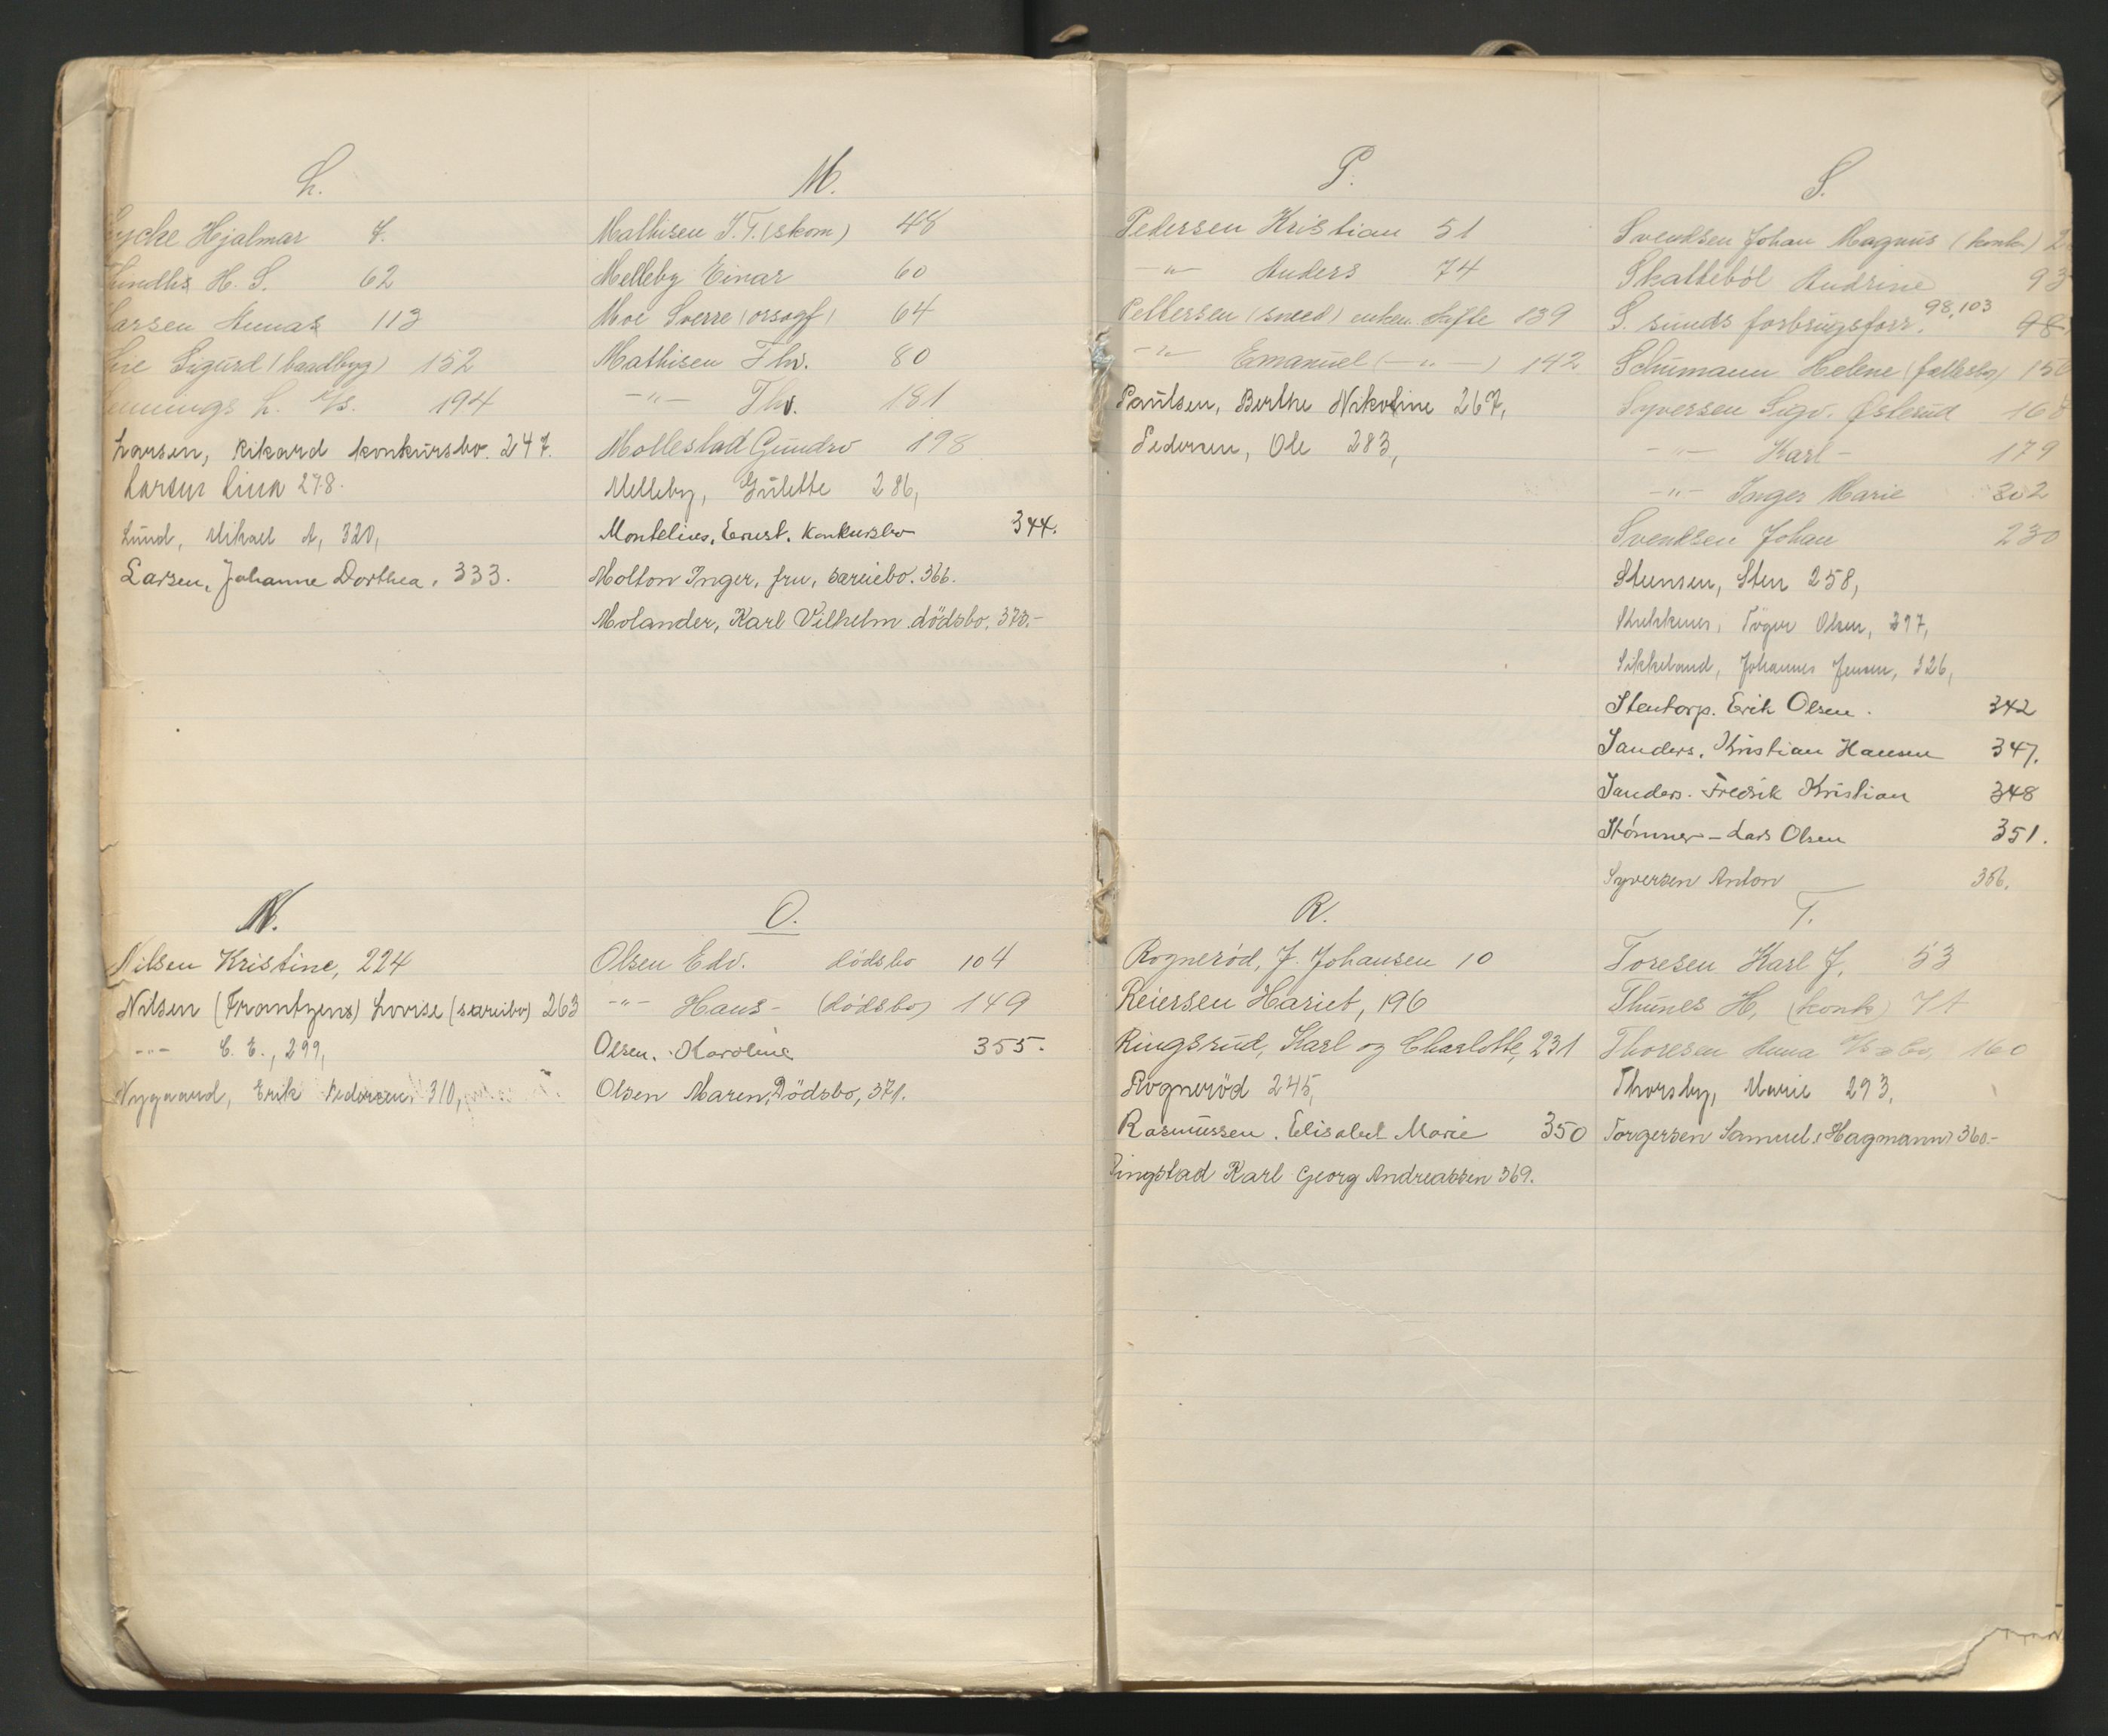 L.
Lycke Hjalmar 7.
H. S. 62
Larsen Annas 113
Lie Sigurd (baadbyg) 152
L. A/S. 194
Larsen, Rikard konkursbo. 247.
Larsen Lina 278.
Lund, Mikael A, 320,
Larsen, Johanne Dorthea, 333.
M.
Mathisen J. T. (skom) 48
Melleby Einar 60
Moe Sverre (orsagf) 64
Mathisen Thv. 80
-"- Thv. 181
Mollestad Gundro 198
Melleby, Gulette 286,
Montelius, Ernst. Konkursbo 344.
Molton Inger, fru, særeiebo. 366.
Molander, Karl Vilhelm dödsbo. 370.-
N.
Nilsen Kristine, 224
Nilsen (Frantzens) Lovise (særeibo) 263
-"- C. E., 299,
Nygaard, Erik Pedersen, 310,
O.
Olsen Edv. dödsbo 104
-"- Hans - (dödsbo) 149
Olsen. Karoline 355.
Olsen Maren, Dödsbo, 371.
P.
Pedersen Kristian 51
-"- Anders 74
Pettersen (sned) enken 139
-"- Emanuel (-"-) 142
Paulsen, Berthe Nikoline 267,
Pedersen, Ole 283,
R.
Rognerød, J. Johansen 10
Reiersen Hariet, 196
Ringsrud, Karl og Charlotte, 231
Rognerød 245,
Rasmussen. Elisabet Marie 350
Ringstad Karl Georg Andreassen 369.
S.
Svendsen Johan Magnus (konk) 2
Skatteböl Andrine 93
S. sunds forbrugsforr. 98,103 98
Schumann Helene (fallitbo) 156
Syversen Sigv. Østerud 168
-"- Karl - 179
-"- Inger Marie 202
Svendsen Johan 230
Steensen, Sten 258,
Olsen, 317,
Sikkeland, Johannes Jensen, 326,
Stentorp. Erik Olsen. 342
Sanders. Kristian Hansen 347.
Sanders. Fredrik Kristian 348
Stömner - Lars Olsen 351.
Syversen Anton 356.
T.
Toresen Karl J. 53
Thunes H. (konk) 71
Thoresen Anna 160
Thorsby, Marie 293,
Torgersen Samuel (Hagmann) 360.-